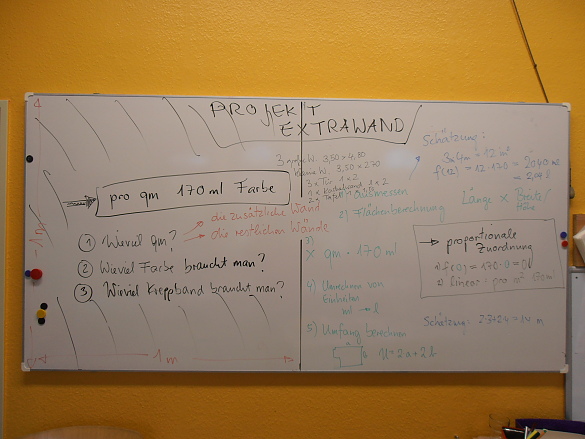 PROJEKT
EXTRAWAND
pro qm 170 ml Farbe
① Wieviel qm?
die zusätzliche Wand
die restlichen Wände
② Wieviel Farbe braucht man?
③ Wieviel Kreppband braucht man?
1m
1m
W. 3,50 x
W. 3,50 x 2,70
3 x Tür 1 x 2
1 x 2
ausmessen
2) Flächenberechnung
3)
x qm · 170 ml
4) Umrechnen von
Einheiten
ml → l
5) Umfang berechnen
U = 2a + 2b
Schätzung:
= 12 m²
f(12) = 12 · 170 = 2040 ml
= 2,04 l
Länge x Breite/
Höhe
→ proportionale
Zuordnung
1) f(0) = 170 · 0 = 0 l
2) linear: pro m² 170 ml
Schätzung: